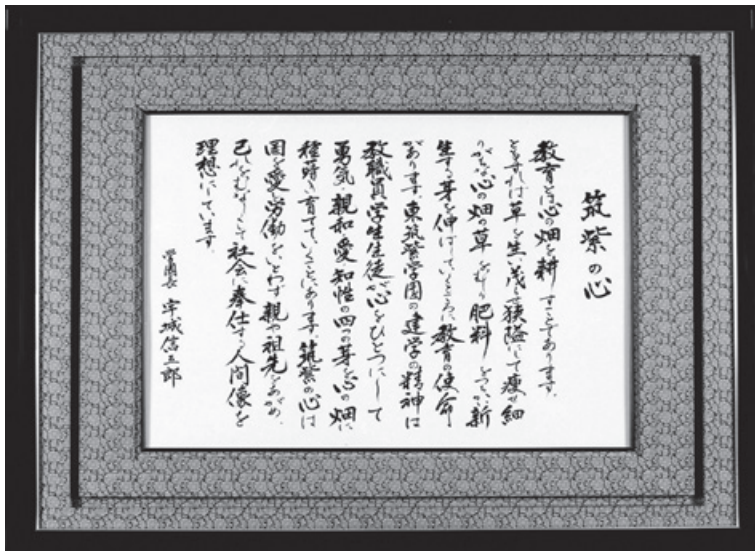 筑紫の心
教育とは心の畑を耕すことであります。
ともすれば草を生い茂らせ狭隘にして痩せ細
りがちな心の畑の草をむしり肥料をつちかい新
生する芽を伸ばしていくところに教育の使命
があります。東筑紫学園の建学の精神は
教職員学生生徒が心をひとつにして
勇気、親和、愛、知性の四つの芽を心の畑に
種蒔き育てていくことにあります。筑紫の心は
国を愛し労働をいとわず親や祖先をあがめ、
己れをむなしくして社会に奉仕する人間像を
理想にしています。
学園長 宇城信五郎